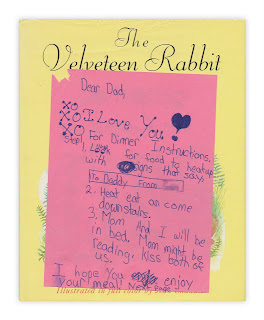 The
Velveteen Rabbit
Dear Dad,
XO
XO I Love You
XO For Dinner Instructions,
Step 1. Look for food to heatup
with signs that says
To Daddy From
2. Heat eat an come
downstairs.
3. Mom And I will be
in bed. Mom might be
reading, kiss both of
us.
I hope you enjoy
your meal
Illustrated in full color by